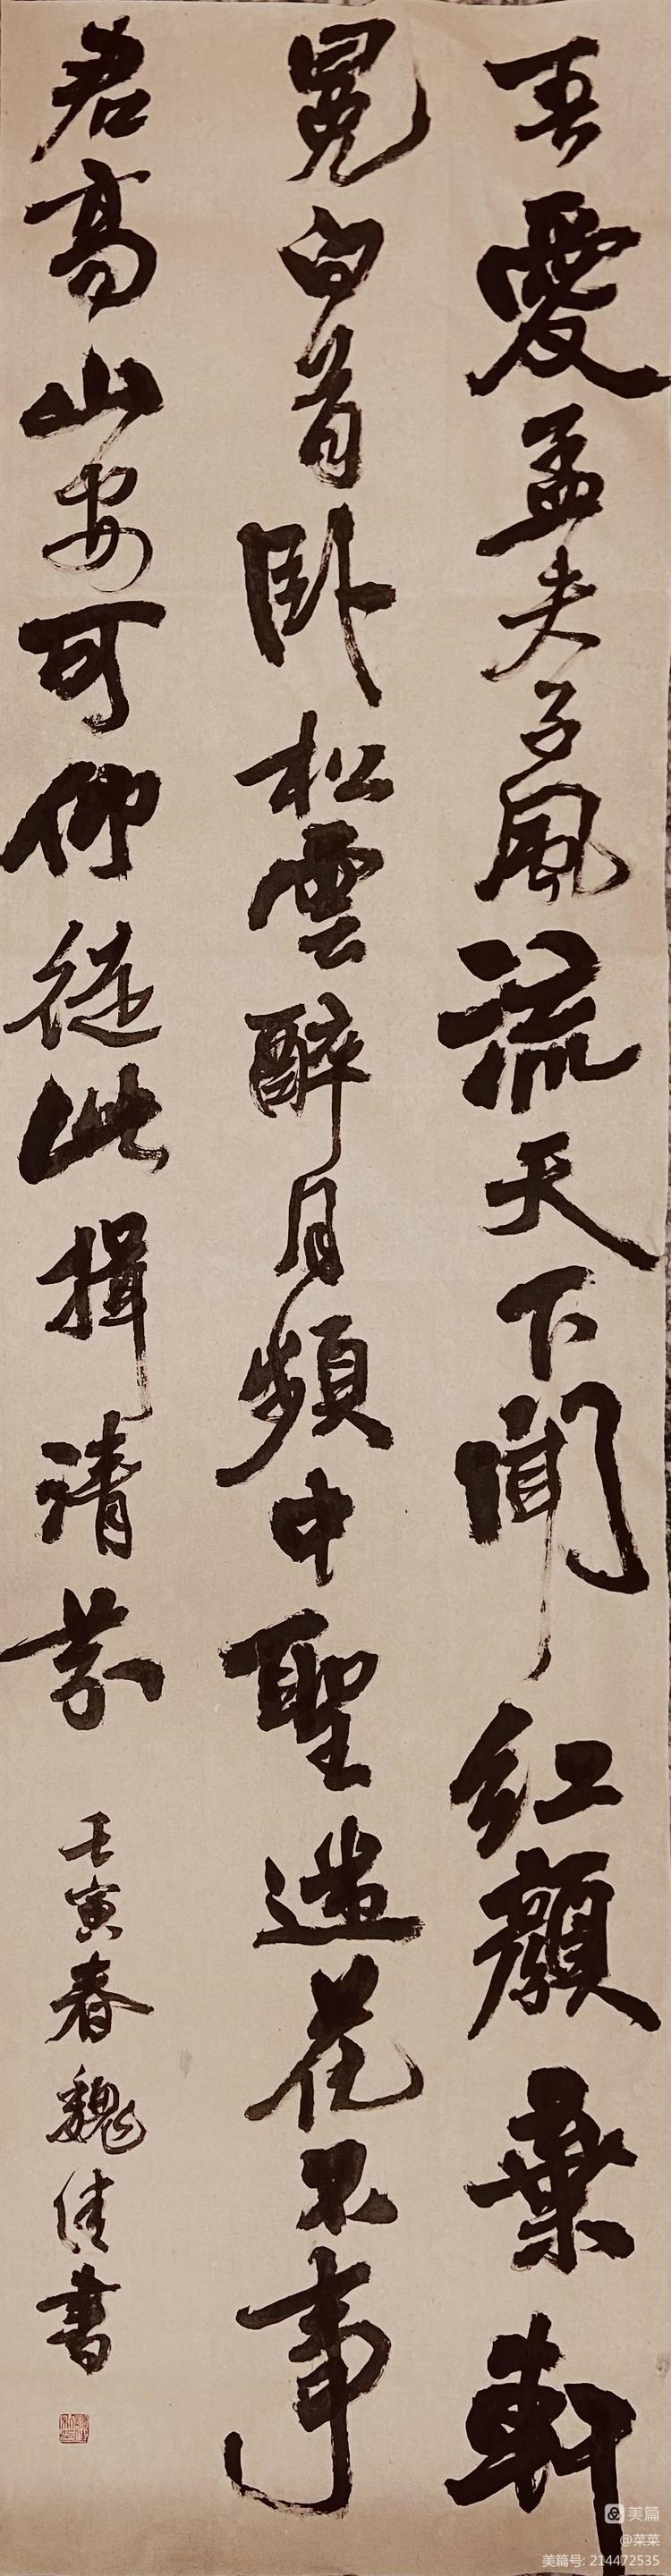 吾愛孟夫子風流天下聞红顏棄軒
冕白首卧松雲醉月頻中聖迷花不事
君高山安可仰徒此揖清芬
壬寅春魏佳書
美篇
@菜菜
美篇号: 214472535